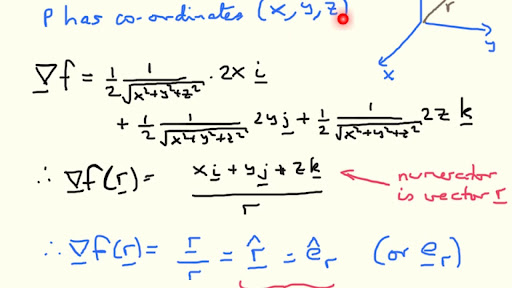 P has co-ordinates (x, y, z)
r
y
x
∇f = 1/2 1/√(x²+y²+z²) · 2x i
+ 1/2 1/√(x²+y²+z²) 2y j + 1/2 1/√(x²+y²+z²) 2z k
∴ ∇f(r) = (x i + y j + z k)/r
numerator
is vector r
∴ ∇f(r) = r/r = r̂ = ê_r (or e_r)